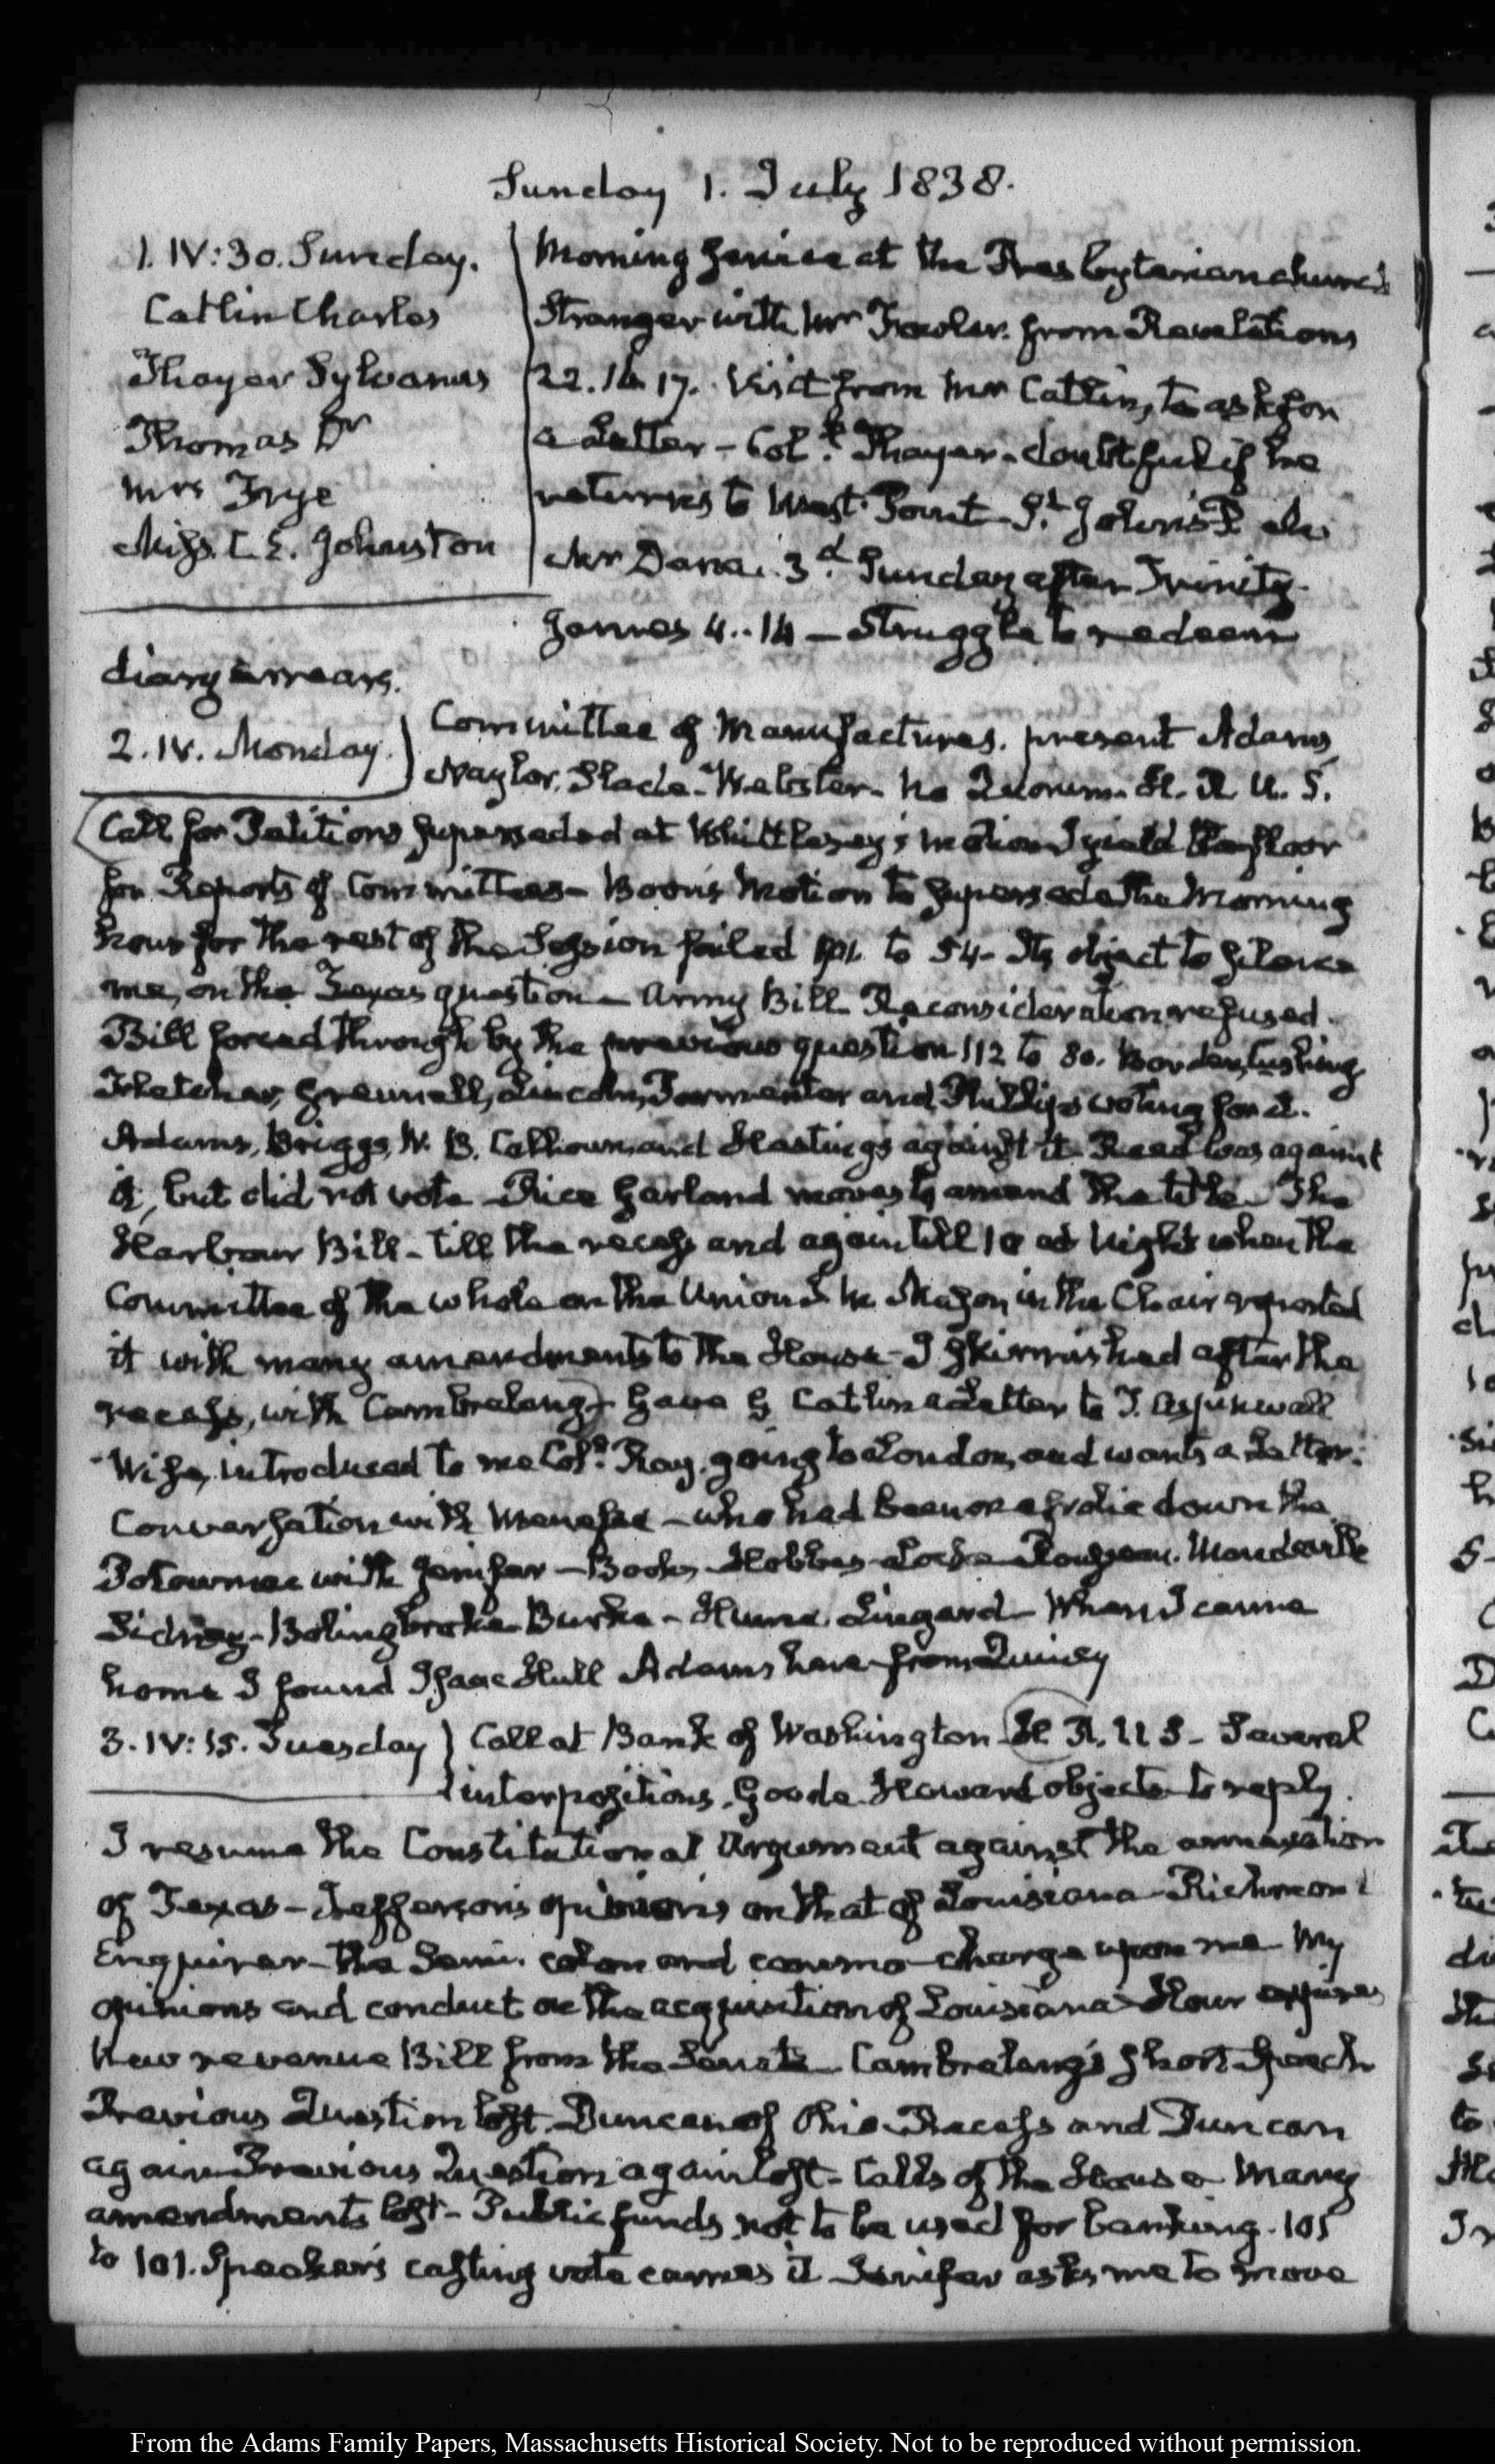 Sunday 1. July 1838.
1. IV:30. Sunday.
Catlin Charles
Thayer Sylvanus
Thomas Dr
Mrs Frye
Miss C. E. Johnston
Morning service at the Presbyterian church
Stranger with Mr Fowler. from Revelations
22. 17. Visit from Mr Catlin, to ask for
a Letter – Col. Thayer – doubtful if he
returns to West Point – St. John's
Mr Dana. 3d. Sunday after Trinity.
James 4..14 – Struggle to redeem
diary arrears.
2. IV. Monday.
Committee of Manufactures. present Adams
Naylor, Slade – Webster – no Quorum. H. R. U. S.
Call for Petitions superseded at Whittlesey's motion I yield the floor
for Reports of Committees – Boon's Motion to supersede the Morning
hour for the rest of the Session failed to 54 – Its object to silence
me, on the Texas question – Army Bill Reconsideration refused.
Bill forced through by the previous question 112 to 80. Borden, Cushing
Fletcher, Grennell, Lincoln, Parmenter and Phillips voting for it.
Adams, Briggs, W. B. Calhoun and Hastings against it Reed was against
it, but did not vote – Rice Garland moves to amend the title – The
Harbour Bill – till the recess and again till 10 at Night when the
Committee of the whole on the Union S. M. Mason in the Chair reported
it with many amendments to the House – I skirmished after the
recess, with Cambreleng – Gave to Catlin a Letter to T. Aspinwall
Wise, introduced to me Coln. Ray, going to London, and wants a Letter.
Conversation with Menefee – who had been on a frolic down the
Potowmac with Jenifer – Books – Hobbes – Locke – Rousseau. Mandeville
Sidney – Bolingbroke – Burke – Hume. Lingard – When I came
home I found Isaac Hull Adams here from Quincy
3. IV:15. Tuesday
Call at Bank of Washington – H. R. U S – Several
interpositions. Goode Howard objects to reply.
I resume the Constitutional Argument against the annexation
of Texas – Jefferson's opinions on that of Louisiana – Richmond
Enquirer – the Semi. colon and comma charge upon me – My
opinions and conduct on the acquisition of Louisiana – Hour expires
New revenue Bill from the Senate – Cambreleng's short Speech
Previous Question lost. Duncan of Ohio – Recess and Duncan
again – Previous Question again lost – Calls of the House – Many
amendments lost – Public funds not to be used for banking. 101
to 101. Speaker's casting vote carries it Jenifer asks me to move
From the Adams Family Papers, Massachusetts Historical Society. Not to be reproduced without permission.